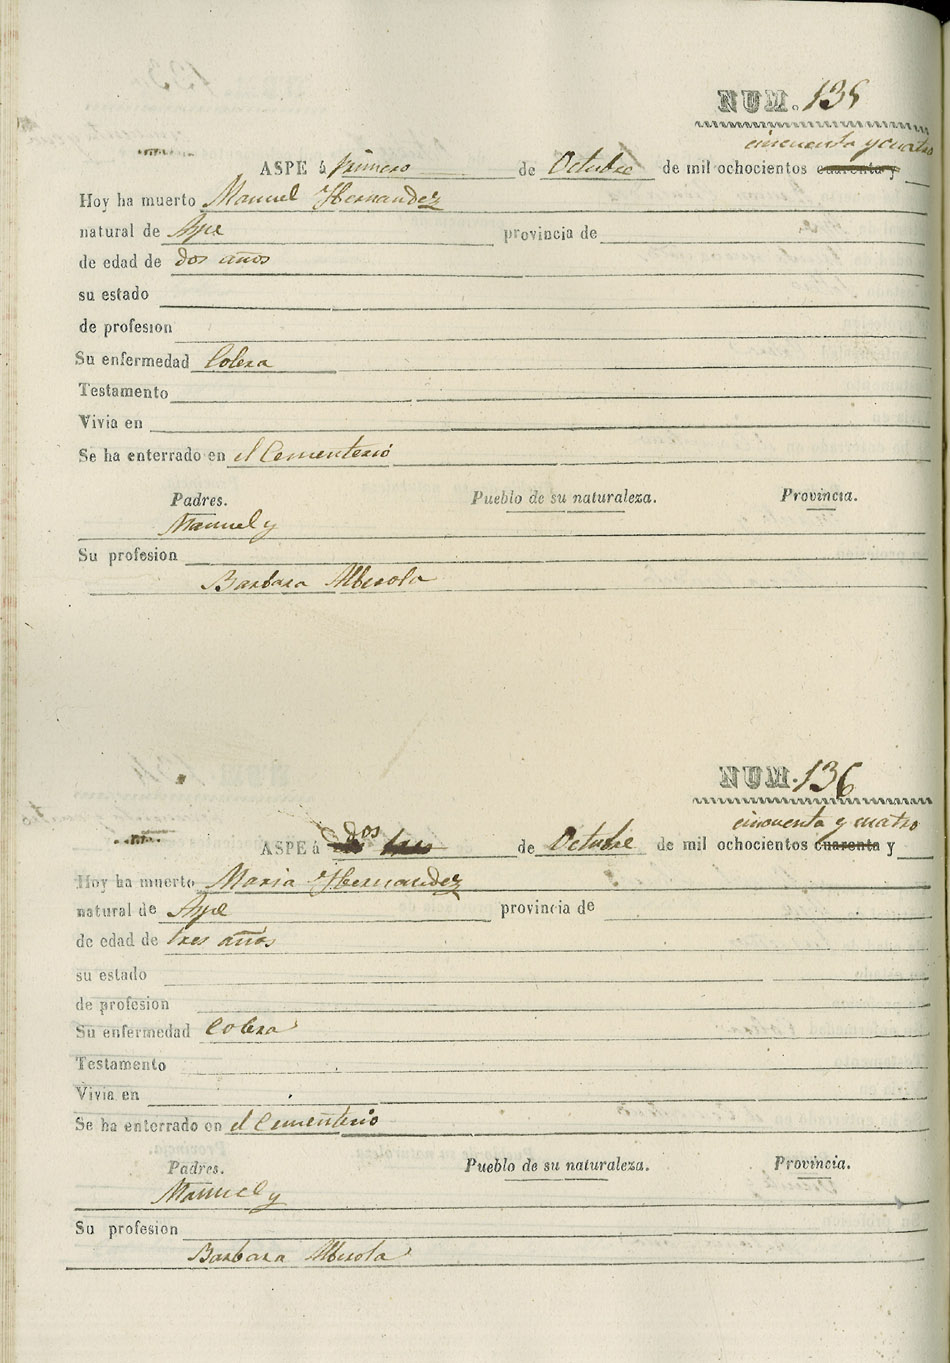 NUM. 135
cincuenta y cuatro
ASPE á primero de Octubre de mil ochocientos cuarenta y
Hoy ha muerto Manuel Hernandez
natural de Aspe provincia de
de edad de dos años
su estado
de profesion
Su enfermedad Colera
Testamento
Vivia en
Se ha enterrado en el Cementerio
Padres. Pueblo de su naturaleza. Provincia.
Manuel y
Su profesion
Barbara Alberola
NUM. 136
cincuenta y cuatro
dos
ASPE á de Octubre de mil ochocientos cuarenta y
Hoy ha muerto Maria Hernandez
natural de Aspe provincia de
de edad de tres años
su estado
de profesion
Su enfermedad Colera
Testamento
Vivia en
Se ha enterrado en el Cementerio
Padres. Pueblo de su naturaleza. Provincia.
Manuel y
Su profesion
Barbara Alberola